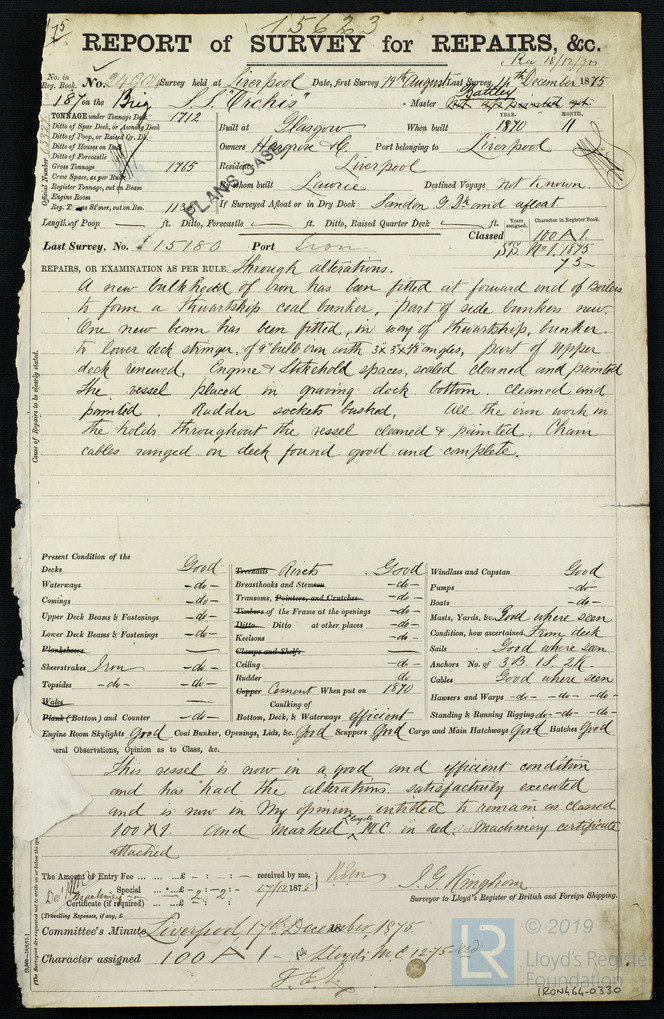 75
15623
REPORT of SURVEY for REPAIRS, &c.
Rec 18/12/75
No. in Reg. Book. No. Survey held at Liverpool Date, first Survey 19th August Last Survey, 14th December 1875
187 on the Brig S.S. "Orchis" Master Battley
TONNAGE under Tonnage Deck 1712
Ditto of Spar Deck, or Awning Deck
Ditto of Poop, or Raised Qr. Dk.
Ditto of Houses on Deck
Ditto of Forecastle
Gross Tonnage 1765
Crew Space, as per Rule
Register Tonnage, cut on Beam
Engine Room
Official Number
Built at Glasgow When built YEAR. 1870 MONTH. 11
Owners Hargrove & Co. Port belonging to Liverpool
Residence Liverpool
By whom built Lawrie Destined Voyage not known
PLANS CASE
If Surveyed Afloat or in Dry Dock Sandon G Dk and afloat
Length of Poop — ft. Ditto, Forecastle — ft. Ditto, Raised Quarter Deck — ft.
Years assigned. Character in Register Book.
Classed 100 A 1.
SS. No 1. 1875
75
Last Survey, No. 15180 Port Iron
REPAIRS, OR EXAMINATION AS PER RULE Through alterations.
A new bulkhead of Iron has been fitted at forward end of Boilers
to form a thwartship coal bunker, part of side bunkers new.
One new beam has been fitted, in way of thwartship, bunker.
to lower deck stringer, of 9" bulb iron with 3 x 3 x 4/8 angles, part of upper
deck renewed, Engine & Stokehold spaces, scaled cleaned and painted
The vessel placed in graving dock bottom. Cleaned and
painted. Rudder sockets bushed. All the iron work in
the holds throughout the vessel cleaned & painted. Chain
cables ranged on deck found good and complete.
Cause of Repairs to be clearly stated.
Present Condition of the
Decks Good
Waterways -do-
Comings -do-
Upper Deck Beams & Fastenings -do-
Lower Deck Beams & Fastenings -do-
Planksheers
Sheerstrakes Iron -do-
Topsides -do- -do-
Wales
Plank (Bottom) and Counter -do-
Treenails Rivets Good
Breasthooks and Stemson -do-
Transoms, Pointers, and Crutches -do-
Timbers of the Frame at the openings -do-
Ditto Ditto at other places -do-
Keelsons -do-
Clamps and Shelfs
Ceiling -do-
Rudder do
Copper Cement When put on 1870
Caulking of
Bottom, Deck, & Waterways efficient
Windlass and Capstan Good
Pumps -do-
Boats -do-
Masts, Yards, &c. Good where seen
Condition, how ascertained From deck
Sails Good where seen
Anchors No. of 3 B. 1 S. 2 K.
Cables Good where seen
Hawsers and Warps -do- -do- -do-
Standing & Running Rigging do- -do- -do-
Engine Room Skylights good Coal Bunker, Openings, Lids, &c. Good Scuppers Good Cargo and Main Hatchways Good Hatches Good
General Observations, Opinion as to Class, &c.
This vessel is now in a good and efficient condition
and has had the alterations satisfactorily executed
and is now in my opinion entitled to remain as classed
100 A 1. and marked Lloyds M.C. in red. Machinery certificate
attached
The Amount of Entry Fee ... ... £ - : - : - received by me,
Special ... £ - 2 : 2 : - 17/12/1875
Machinery
Certificate (if required)
(Travelling Expenses, if any, £
J. G. Kingham
Surveyor to Lloyd's Register of British and Foreign Shipping.
Committee's Minute Liverpool 17th December 1875.
Character assigned 100 A 1 - Lloyds M.C. 12-75 red
© 2019
LR
Lloyd's Register
Foundation
IRON464-0330